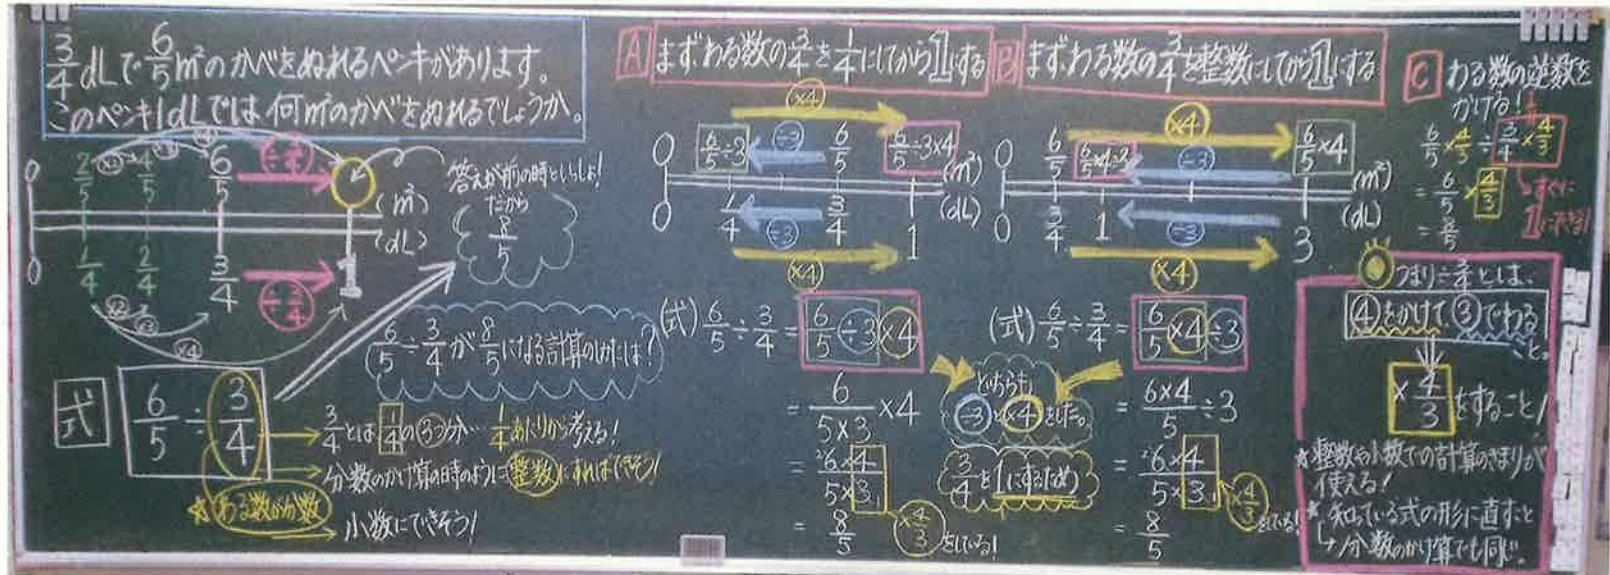 3/4 dLで 6/5 m²のかべをぬれるペンキがあります。
このペンキ1dLでは何m²のかべをぬれるでしょうか。
0 2/5 4/5 6/5
(m²)
(dL)
0 1/4 2/4 3/4 1
×2
×3
×4
÷3/4
÷3/4
答えが前の時といっしょ!
だから
8/5
6/5÷3/4が8/5になる計算のしかたは?
式 6/5÷3/4
3/4とは1/4の3つ分… 1/4あたりから考える!
分数のかけ算の時のように整数にすればできそう!
☆わる数が分数
小数にできそう!
A まずわる数の3/4を1/4にしてから1にする
×4
÷3
0 6/5÷3 6/5 6/5÷3×4 (m²)
0 1/4 3/4 1 (dL)
÷3
×4
(式) 6/5÷3/4=6/5÷3×4
=6/5×3 ×4
=6×4/5×3
=8/5
×4/3をしている!
B まずわる数の3/4を整数にしてから1にする
×4
÷3
0 6/5 6/5×4÷3 6/5×4 (m²)
0 3/4 1 3 (dL)
÷3
×4
(式) 6/5÷3/4=6/5×4÷3
=6×4/5÷3
=6×4/5×3
=8/5
×4/3をしている!
どちらも
÷3と×4をした。
3/4を1にするため
C わる数の逆数を
かける!
6/5×4/3÷3/4×4/3
=6/5×4/3
=8/5
すぐに
1にできる!
つまり÷3/4とは、
④をかけて③でわる
こと。
×4/3をすること!
☆整数や小数での計算のきまりが
使える!
☆知っている式の形に直すこと
分数のかけ算でも同じ。